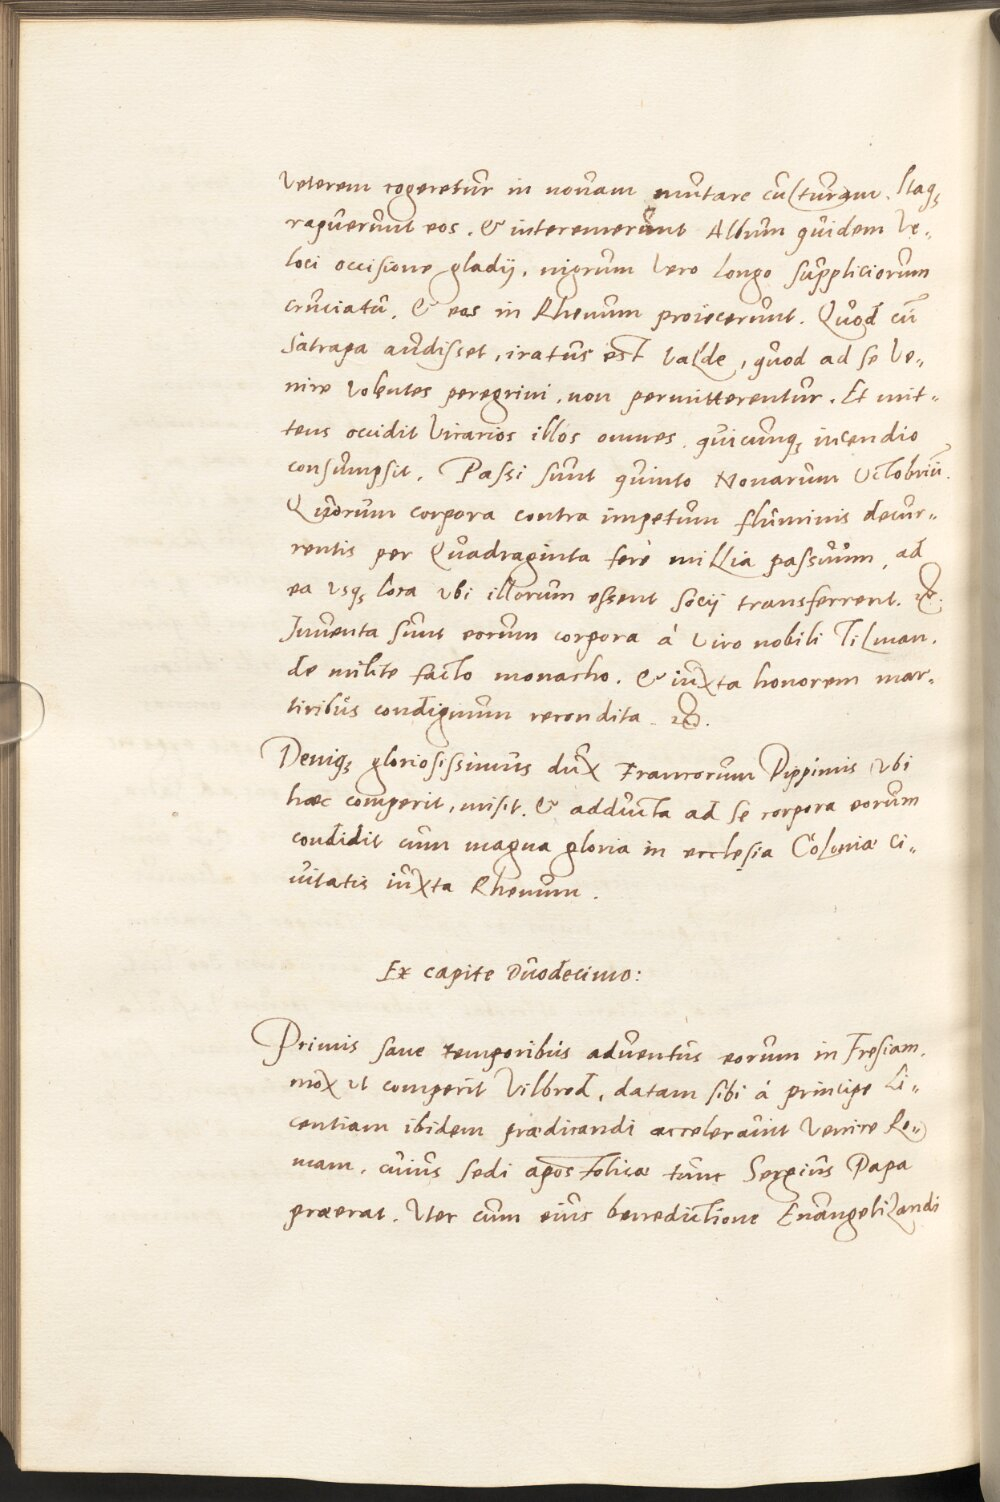 veterem cogeretur in novam mutare culturam. Itaq;
rapuerunt eos. & interemerunt Album quidem ve„
loci occisione gladij, nigrum vero longo suppliciorum
cruciatu. & eos in Rhenum proiecerunt. Quod cū
satrapa audisset, iratus est valde, quod ad se ve„
nire volentes peregrini, non permitterentur. Et mit„
tens occidit vicarios illos omnes. quicunq; incendio
consumpsit. Passi sunt quinto Nonarum Octobriū.
Quorum corpora contra impetum fluminis decur„
rentis per Quadraginta ferè millia passuum, ad
ea usq; loca ubi illorum essent socij transferrent. &c.
Inventa sunt eorum corpora á viro nobili Tilman.
de milite facto monacho. & iuxta honorem mar„
tiribus condignum recondita. &c.
Deniq; gloriosissimus dux Francorum Pippinus ubi
haec comperit, misit. & adducta ad se corpora eorum
condidit cum magna gloria in ecclesia Coloniae ci„
vitatis iuxta Rhenum.
Ex capite Duodecimo:
Primis sane temporibus adventus eorum in Fresiam.
mox ut comperit Vilbrod, datam sibi á principe li„
centiam ibidem praedicandi acceleravit venire Ro„
mam, cuius sedi apostolicae tunc Sergius Papa
praeerat. Uter cum eius benedictione Evangelizandi